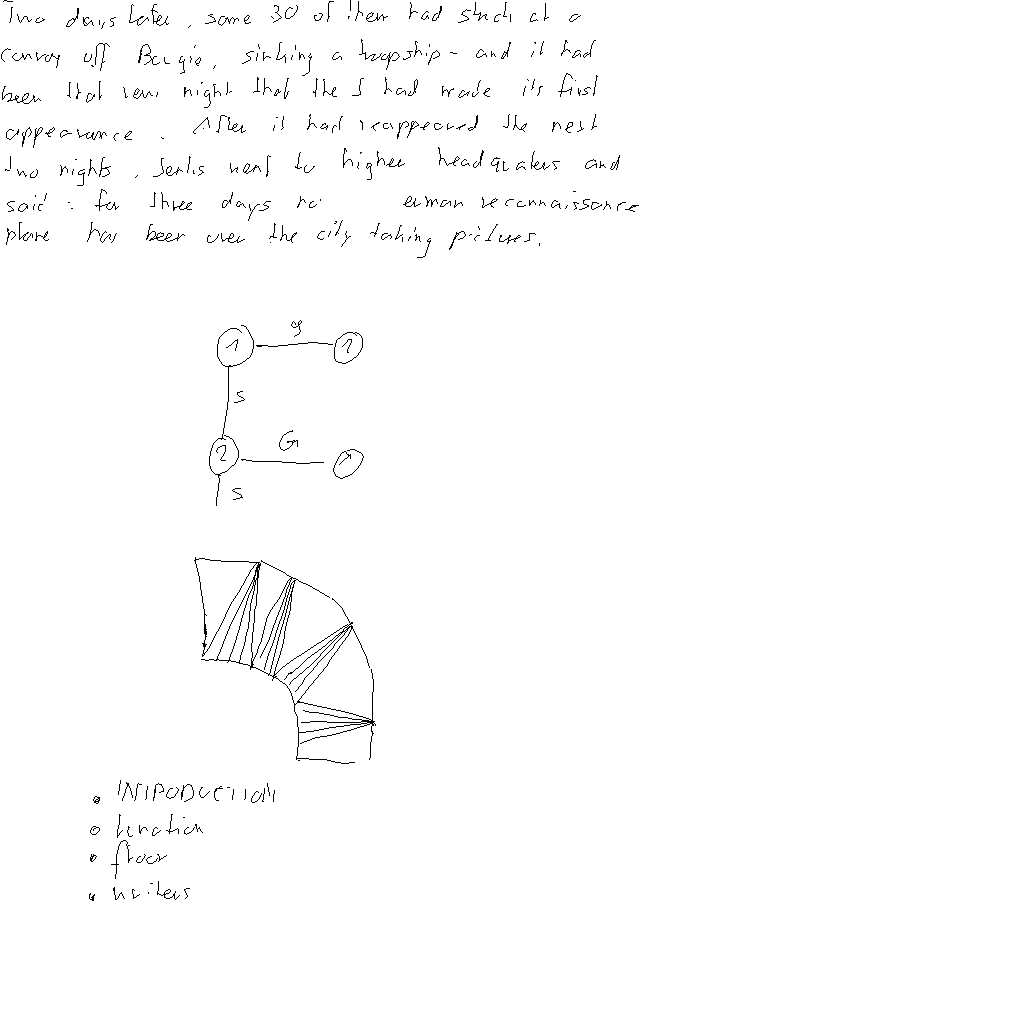 Two days later, some 30 of them had struck at a
convoy off Bougie, sinking a troopship - and it had
been that very night that the J had made its first
appearance. After it had reappeared the next
two nights, Serlis went to higher headquaters and
said: for three days no erman reconnaissance
plane has been over the city taking pictures.
1 g 1
s
2 G 1
s
• INTRODUCTION
• location
• floor
• writers